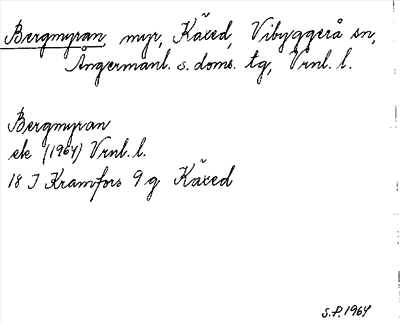 Bergmyran, myr, Käxed, Vibyggerå sn,
Ångermanl. s. doms. tg, Vrnl. l.
Bergmyran
ek (1964) Vrnl. l.
18 J Kramfors 9 g Käxed
S.P. 1964